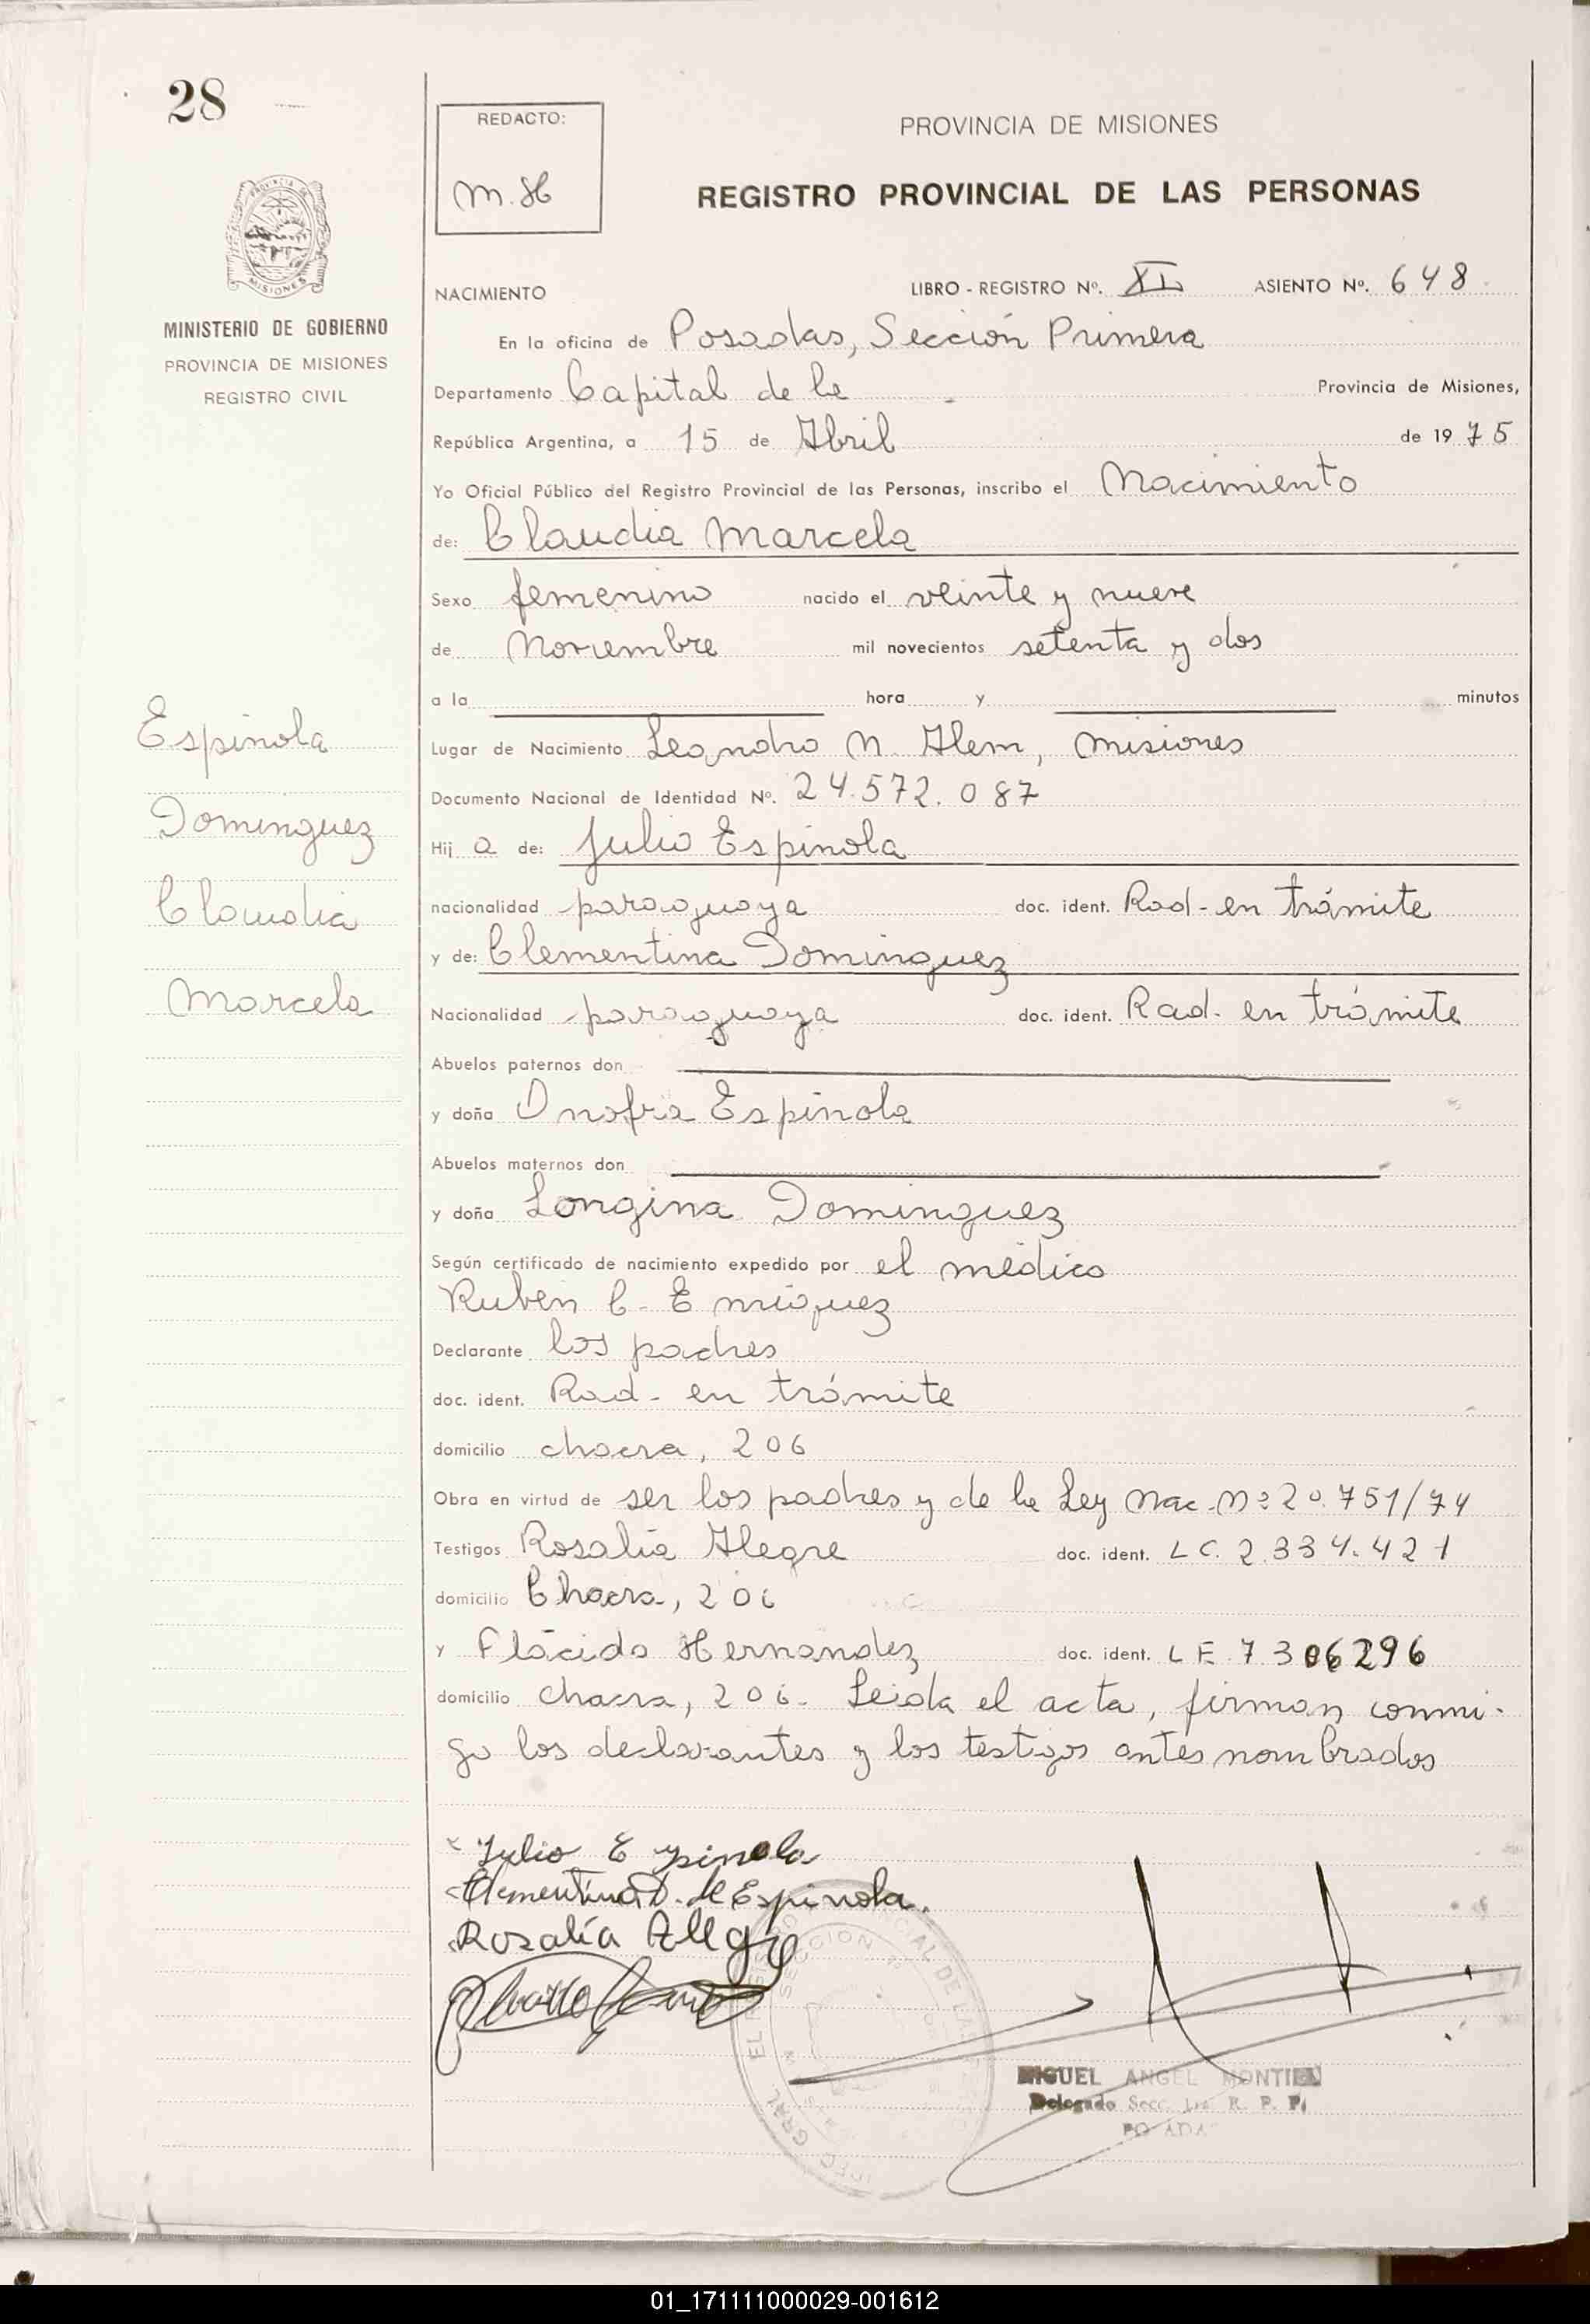 28
REDACTO:
M.H
PROVINCIA DE MISIONES
REGISTRO PROVINCIAL DE LAS PERSONAS
MISIONES
MINISTERIO DE GOBIERNO
PROVINCIA DE MISIONES
REGISTRO CIVIL
NACIMIENTO LIBRO - REGISTRO Nº. XL ASIENTO Nº. 648
En la oficina de Posadas, Sección Primera
Departamento Capital de la Provincia de Misiones,
República Argentina, a 15 de Abril de 1975
Yo Oficial Público del Registro Provincial de las Personas, inscribo el Nacimiento
de: Claudia Marcela
Sexo femenino nacido el veinte y nueve
de Noviembre mil novecientos setenta y dos
a la hora y minutos
Espinola
Dominguez
Claudia
Marcela
Lugar de Nacimiento Leandro N. Alem, Misiones
Documento Nacional de Identidad Nº. 24.572.087
Hij a de: Julio Espinola
nacionalidad paraguaya doc. ident. Rad- en trámite
y de: Clementina Dominguez
Nacionalidad paraguaya doc. ident. Rad. en trámite
Abuelos paternos don
y doña Onofra Espinola
Abuelos maternos don
y doña Longina Dominguez
Según certificado de nacimiento expedido por el médico
Rubén C. Enriquez
Declarante los padres
doc. ident. Rad- en trámite
domicilio chacra, 206
Obra en virtud de ser los padres y de la Ley Nac. Nº 20.751/74
Testigos Rosalia Alegre doc. ident. LC. 2.334.421
domicilio Chacra, 206
y Plácido Hernandez doc. ident. LE 7.306296
domicilio chacra, 206. Leida el acta, firman conmi-
go los declarantes y los testigos antes nombrados
Julio Espinola
Clementina D. de Espinola.
Rosalía Alegre
MIGUEL ANGEL MONTIEL
Delegado Secc. 1ra R. P. P.
POSADAS
01_171111000029-001612